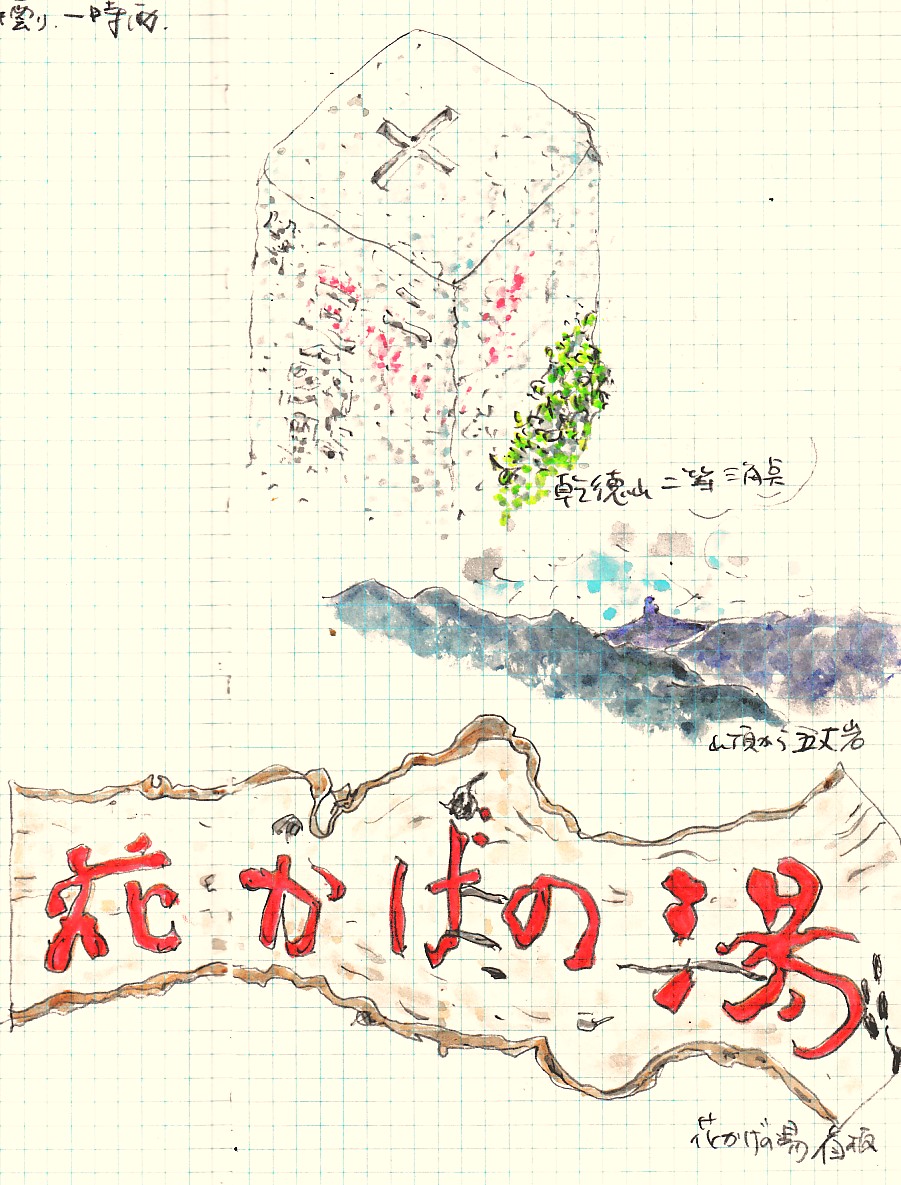 曇り.一時雨.
乾徳山 二等三角点
山頂から五丈岩
花かげの湯
花かげの湯 看板